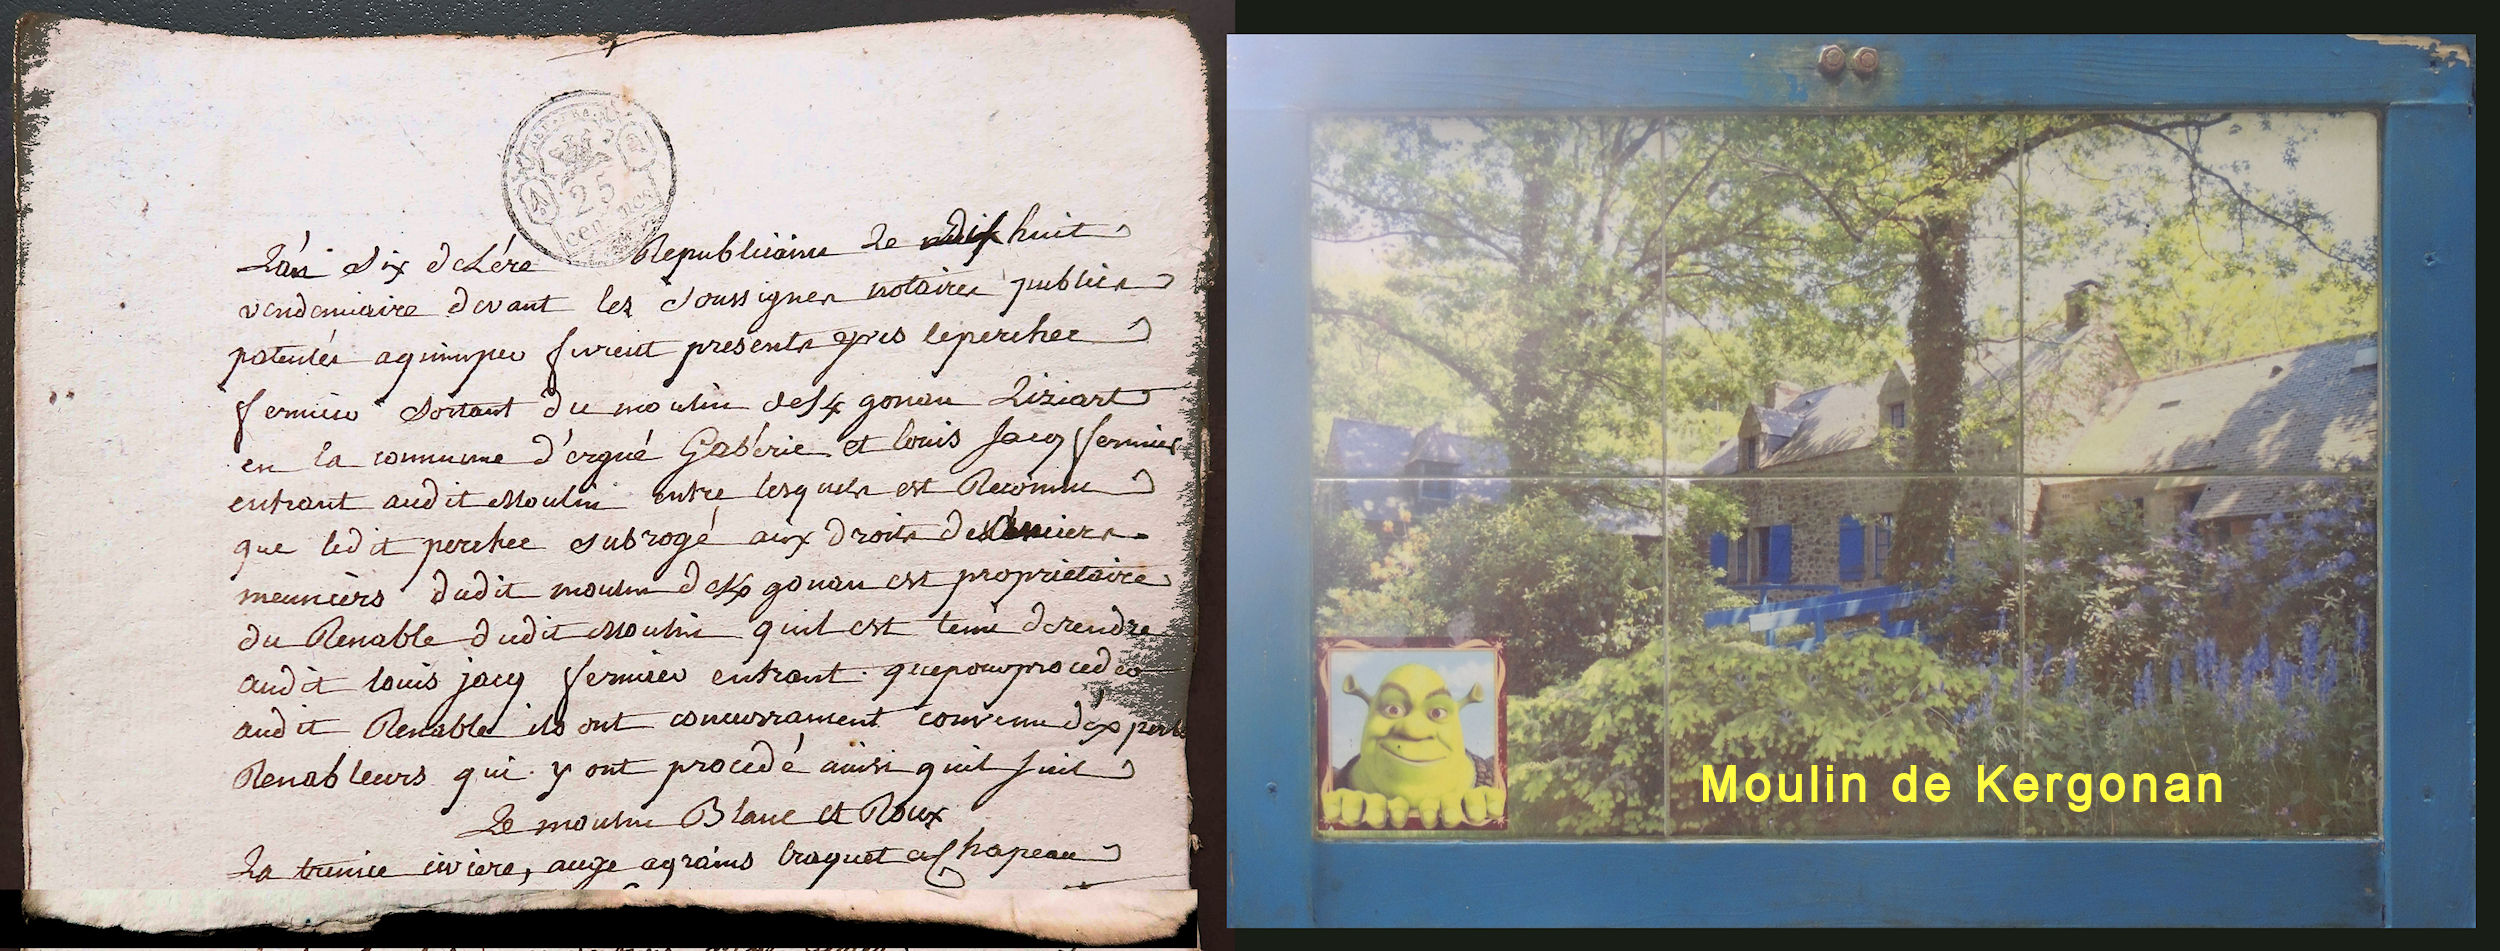 25
centimes
L'an six de L'ére Republicaine Le dix huit
vendemiaire devant les soussignes notaires publics
patentés a quimper furent presents yves le perchec
fermier sortant du moulin de K gonan Liziart
en la commune d'ergué Gabéric et louis Jacq fermier
entrant audit Moulin entre lesquels est Reconnu
que ledit perchec subrogé aux droits des
meuniers dudit moulin de K gonan est proprietaire
du Renable dudit Moulin quil est tenu de rendre
audit louis jacq fermier entrant que pour proceder
audit Renable ils ont concurrament convenu d'experts
Renableurs qui y ont procedé ainsi quil suit
Le moulin Blanc et Roux
La tremie civiere, auge a grains traquet et Chapeau
Moulin de Kergonan